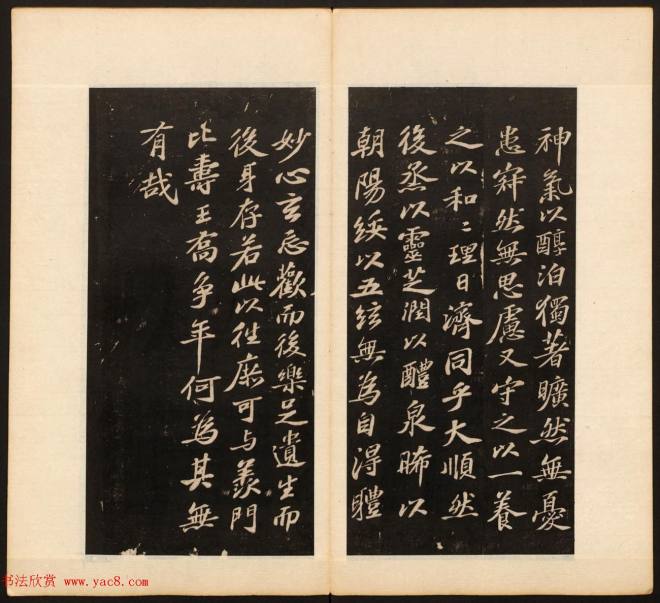 神氣以醇泊獨著曠然無憂
患寂然無思慮又守之以一養
之以和〻理日濟同乎大順然
後蒸以靈芝潤以醴泉晞以
朝陽綏以五絃無為自得體
妙心玄忘歡而後樂足遺生而
後身存若此以往庶可与羨門
比壽王喬争年何為其無
有哉
书法欣赏 www.yac8.com